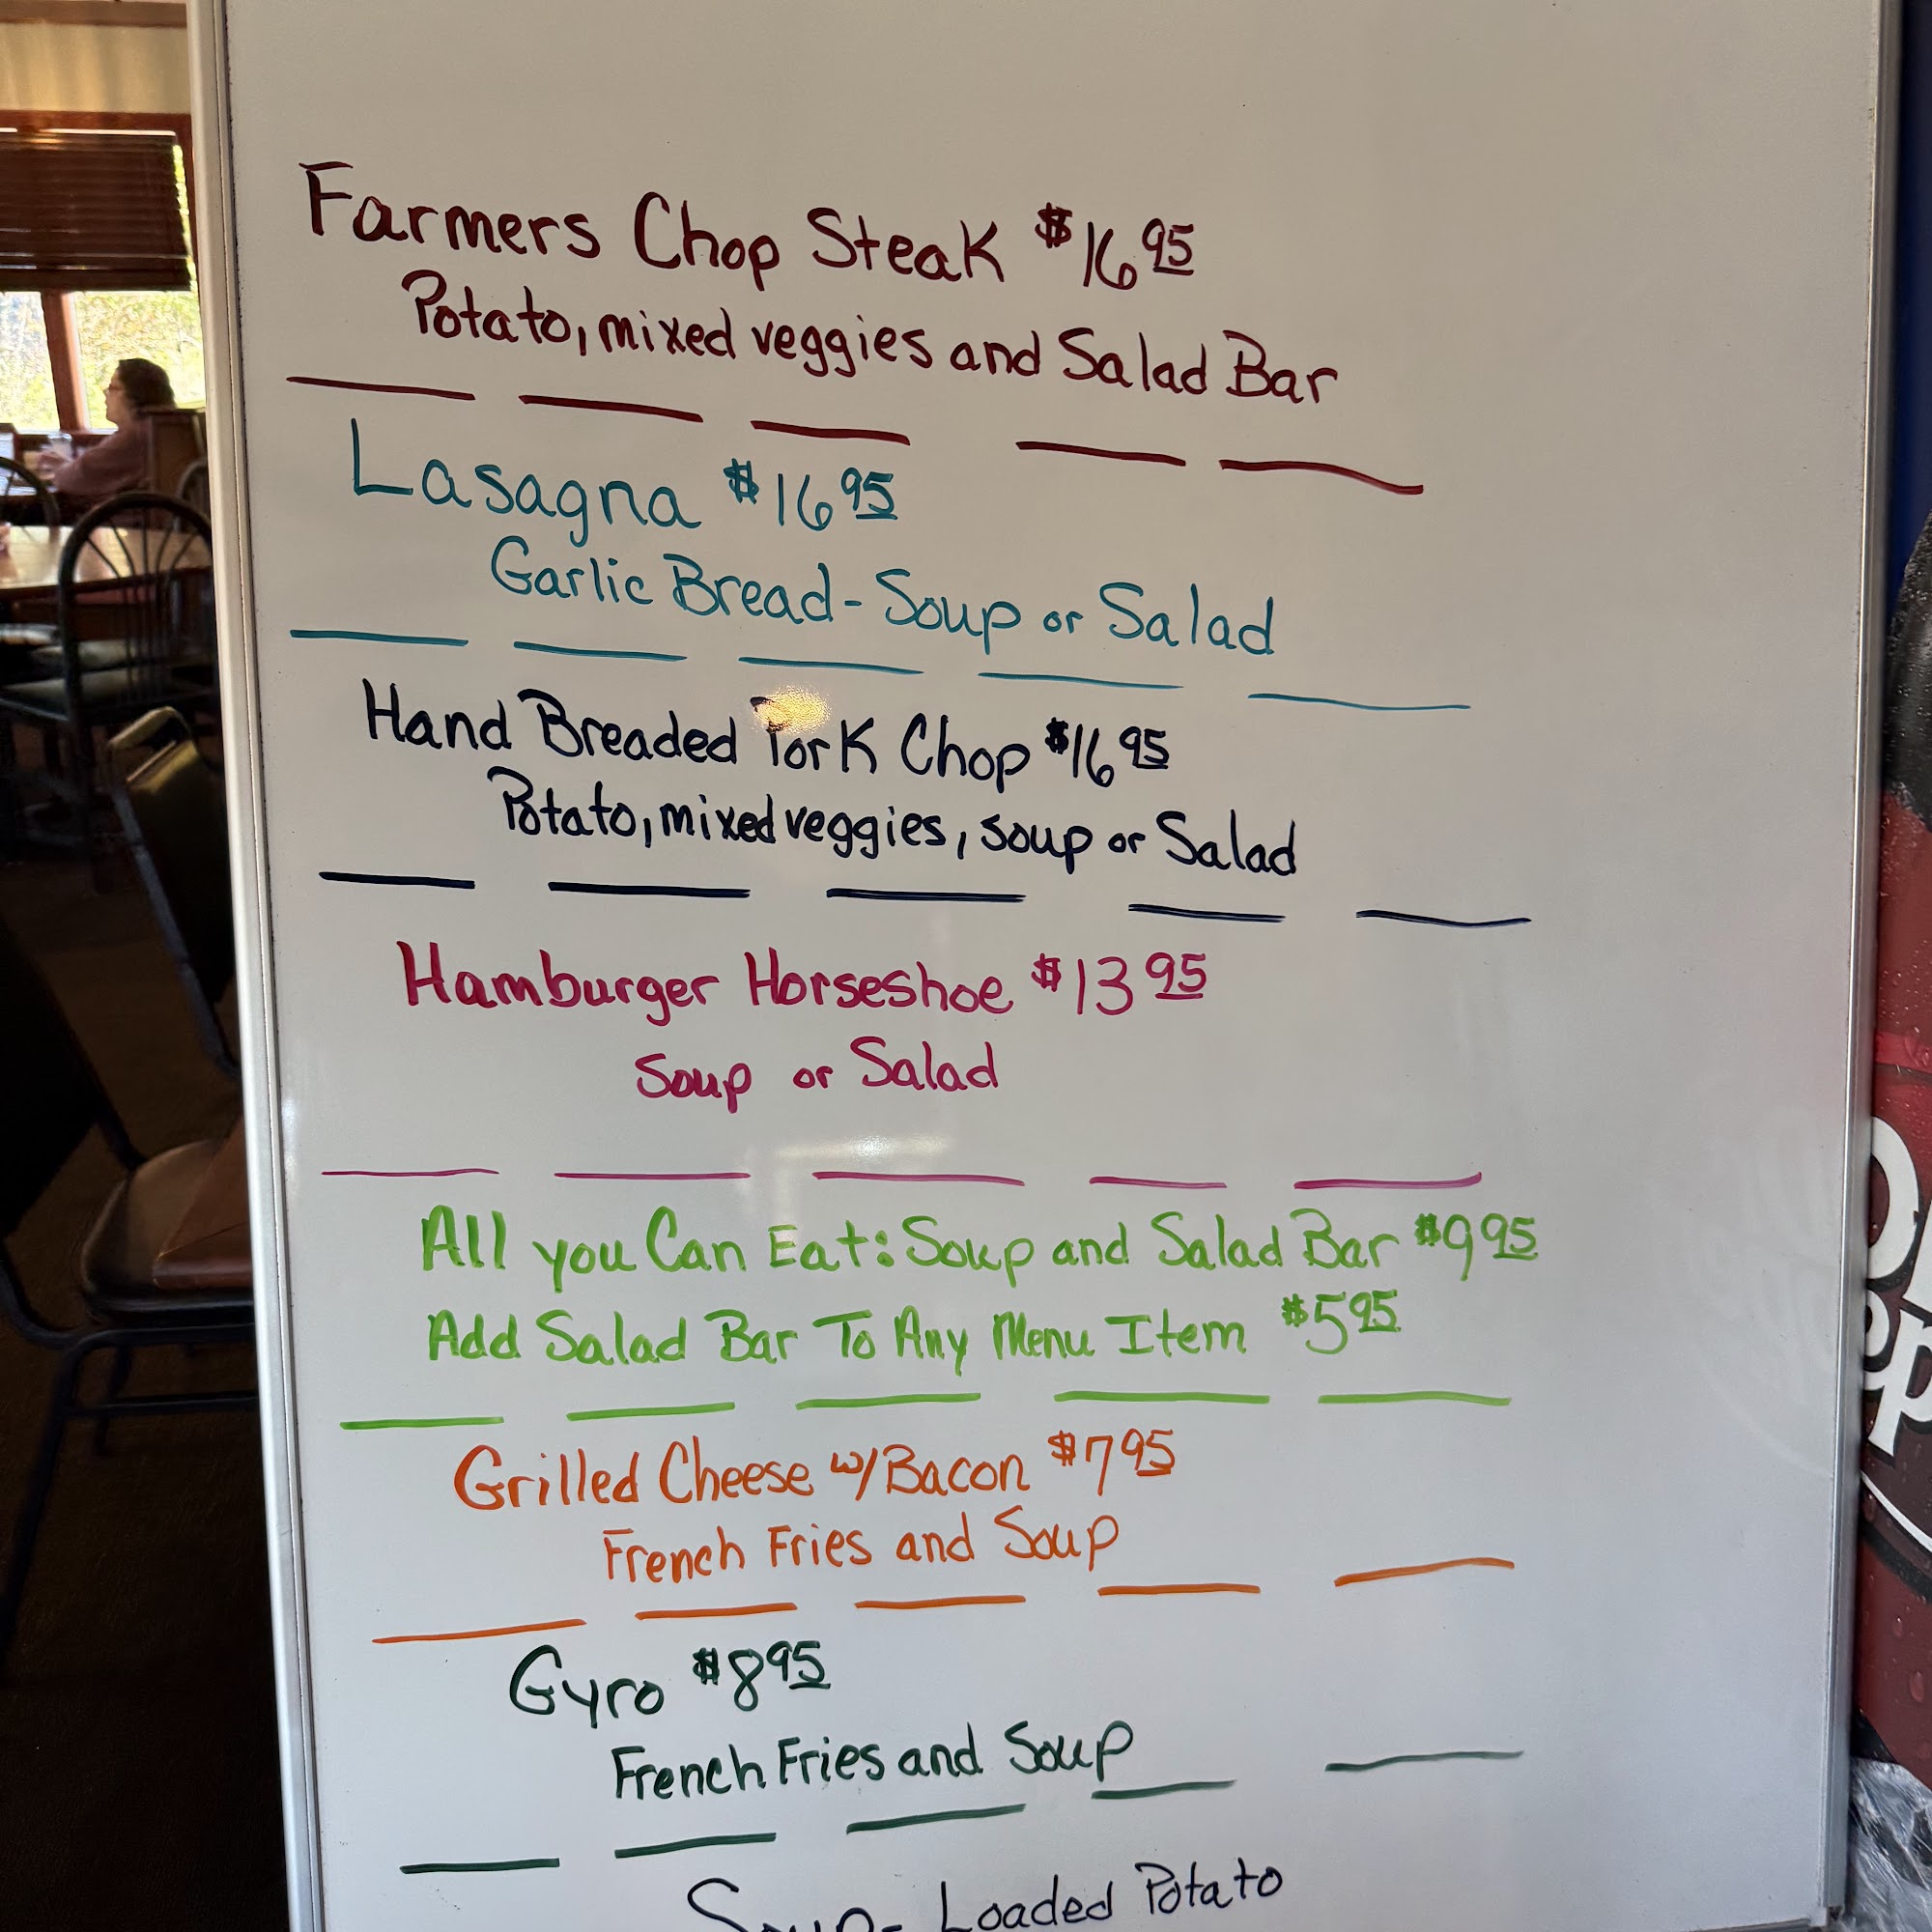 Farmers Chop Steak $16 95
Potato, mixed veggies and Salad Bar
Lasagna $16 95
Garlic Bread - Soup or Salad
Hand Breaded Pork Chop $16 95
Potato, mixed veggies, soup or Salad
Hamburger Horseshoe $13 95
Soup or Salad
All you Can Eat: Soup and Salad Bar $9 95
Add Salad Bar To Any Menu Item $5 95
Grilled Cheese w/Bacon $7 95
French Fries and Soup
Gyro $8 95
French Fries and Soup
Soup - Loaded Potato